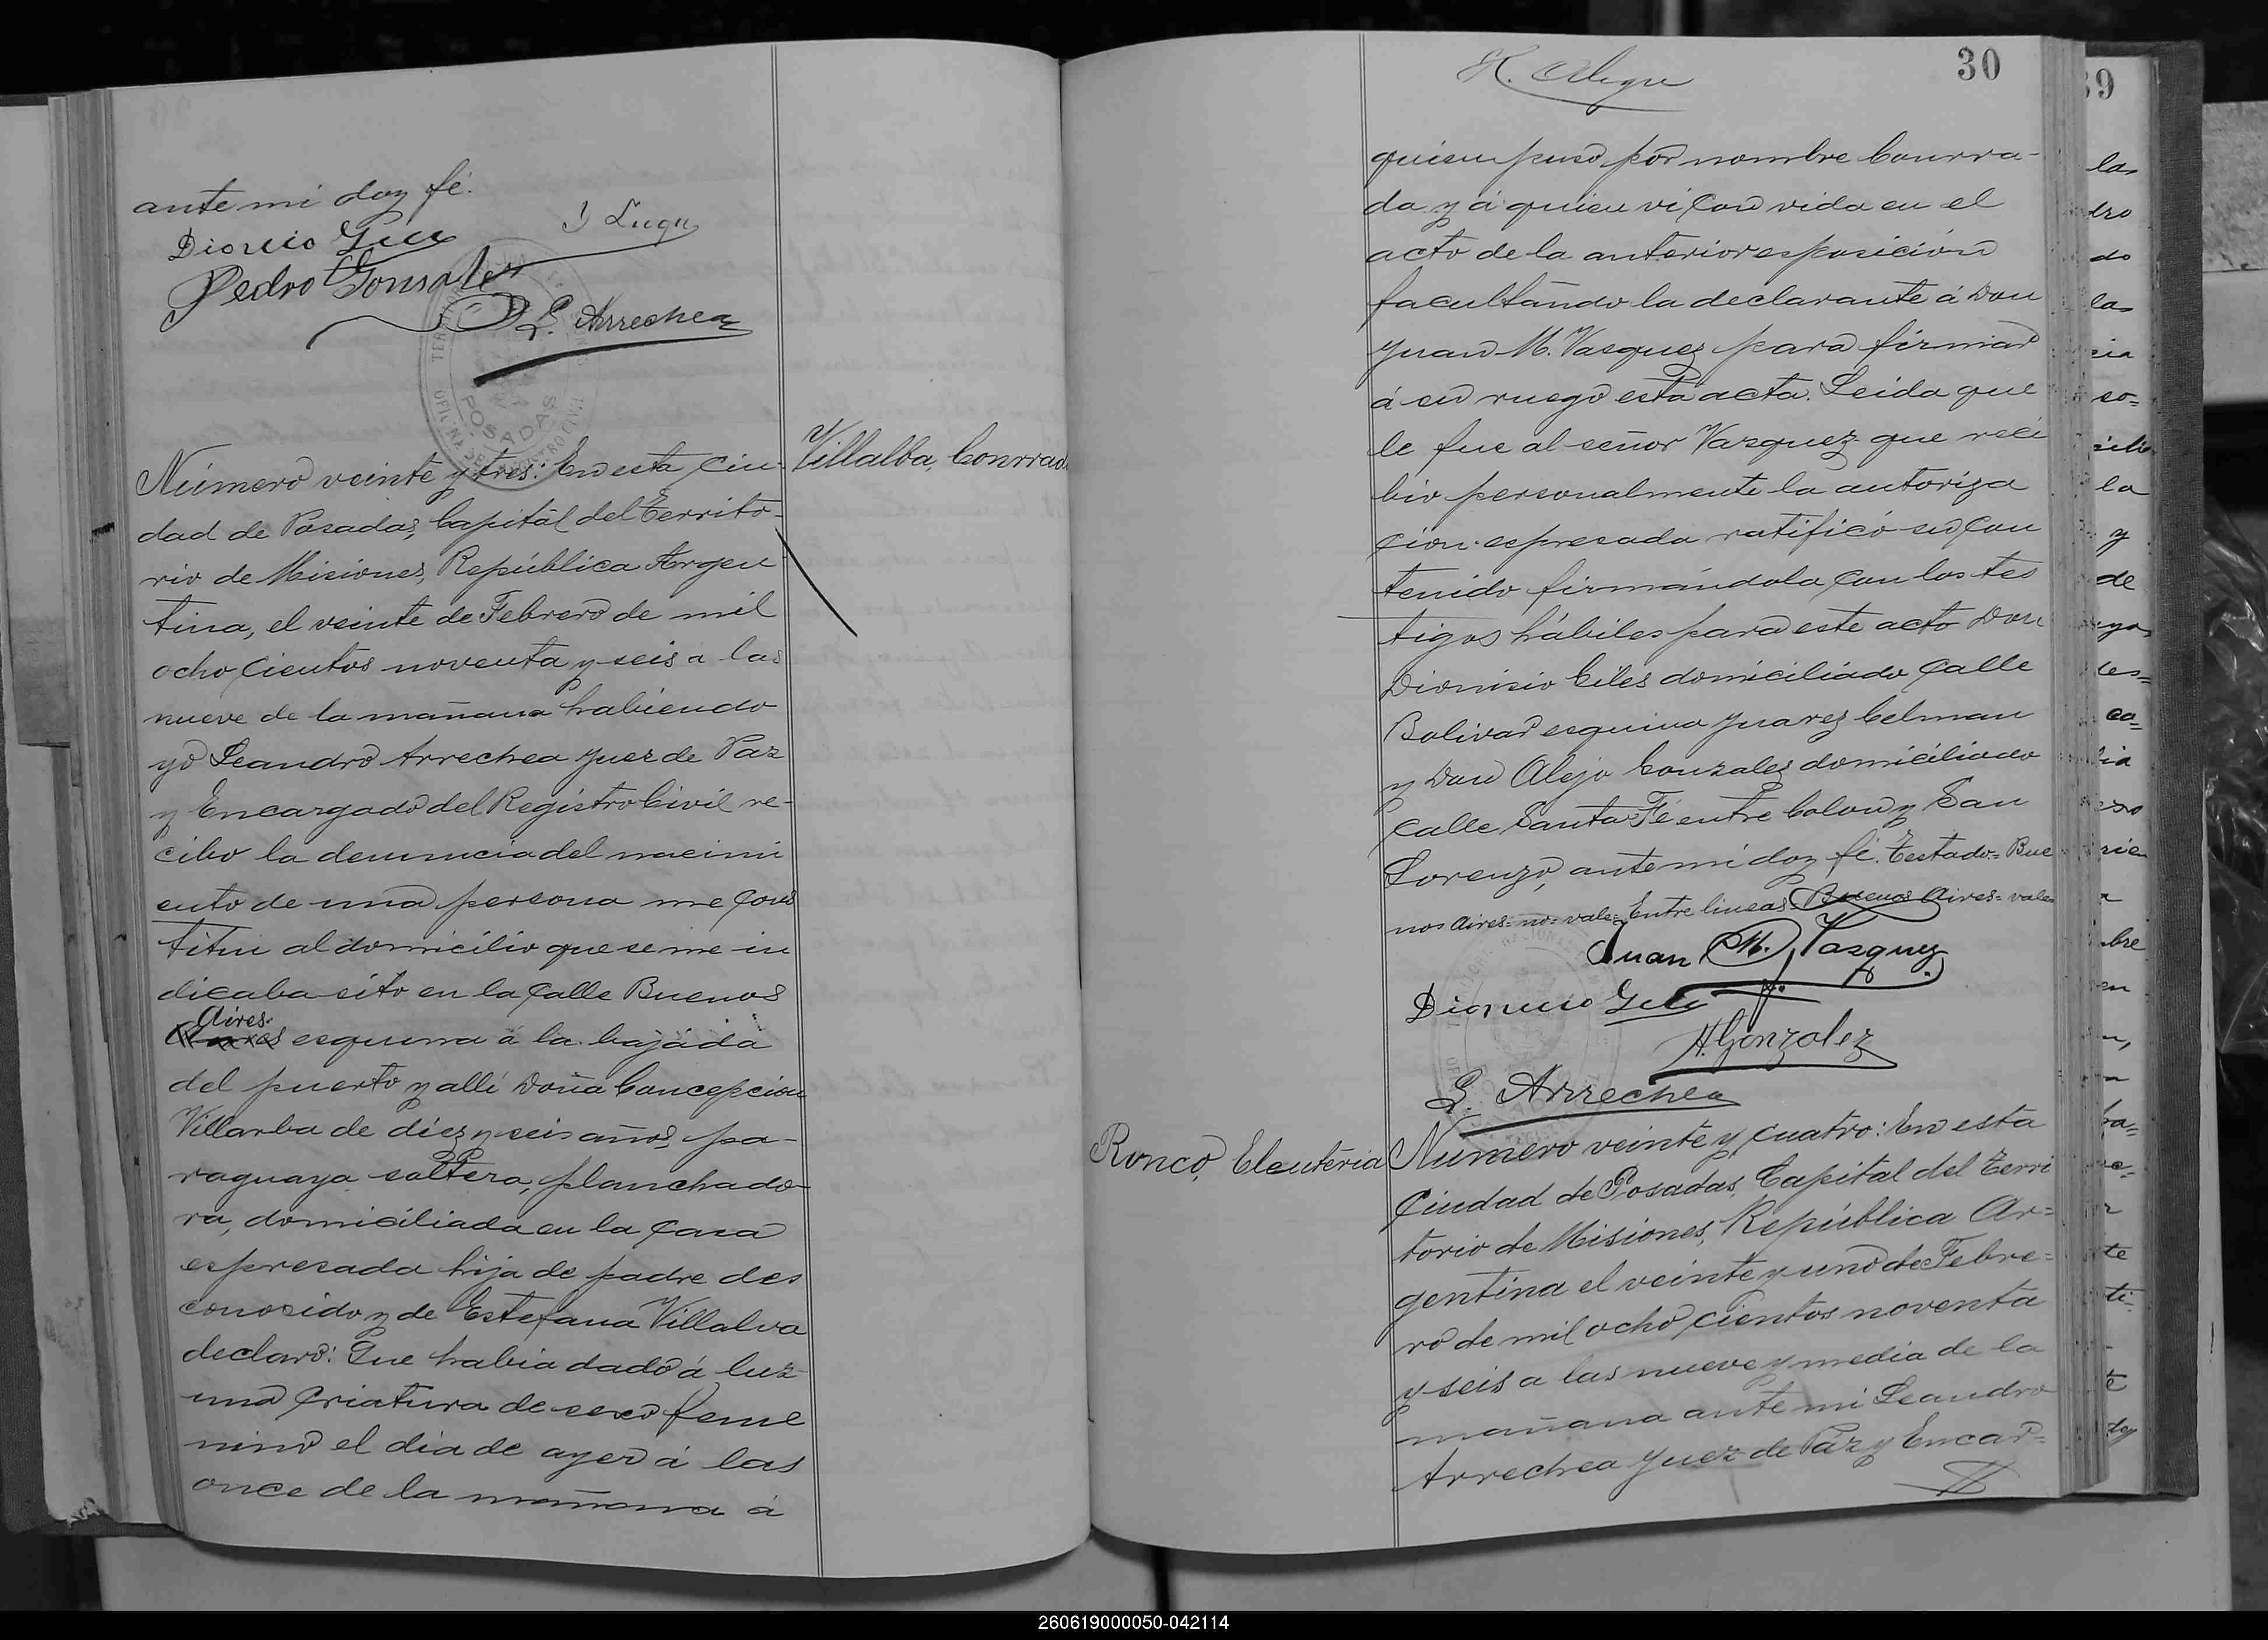 ante mi doy fé.
J Lugn
Pedro Gonsalez
L. Arrechea
POSADAS
Villalba, Conrrad
Número veinte y tres: En esta Ciu-
dad de Posadas, Capitál del Territo-
rio de Misiones, República Argen
tina, el veinte de Febrero de mil
ocho cientos noventa y seis a las
nueve de la mañana habiendo
yo Leandro Arrechea Juez de Paz
y Encargado del Registro Civil re-
cibo la denuncia del nacimi
ento de una persona me cons
titui al domicilio que se me in
dicaba sito en la Calle Buenos
Aires
esquina á la bajáda
del puerto y alli Doña Concepcion
Villarba de diez y seis años, pa-
raguaya soltera, planchado-
ra, domiciliada en la Casa
espresada hija de padre des
conosido y de Estefana Villalva
declaró: Que habia dado á luz
una Criatura de sexo feme
nino el dia de ayer á las
once de la mañana á
30
quien puso por nombre Conrra-
da y á quien vi con vida en el
acto de la anterior esposición
facultando la declarante á Don
Juan M. Vasquez para firmar
á su ruego esta acta. Leida que
le fue al señor Vazquez que reci
bio personalmente la autoriza
cion espresada ratificó su Con
tenido firmándola con los tes
tigos hábiles para este acto Don
Dionisio Giles domiciliado Calle
Bolivar esquina Juarez Celman
y Don Alejo Gonzalez domiciliado
Calle Santa Fé entre Colon y San
Lorenzo, ante mi doy fé. Testado= Bue
nos Aires= no= vale= Entre lineas= Buenos Aires= vale=
Juan M. Vasquez
A. Gonzalez
L. Arrechea
Ronco, Eleuteria
Numero veinte y cuatro: En esta
Ciudad de Posadas, Capital del Terri
torio de Misiones, República Ar=
gentina el veinte y uno de Febre=
ro de mil ocho cientos noventa
y seis a las nueve y media de la
mañana ante mi Leandro
Arrechea Juez de Paz y Encar=
260619000050-042114